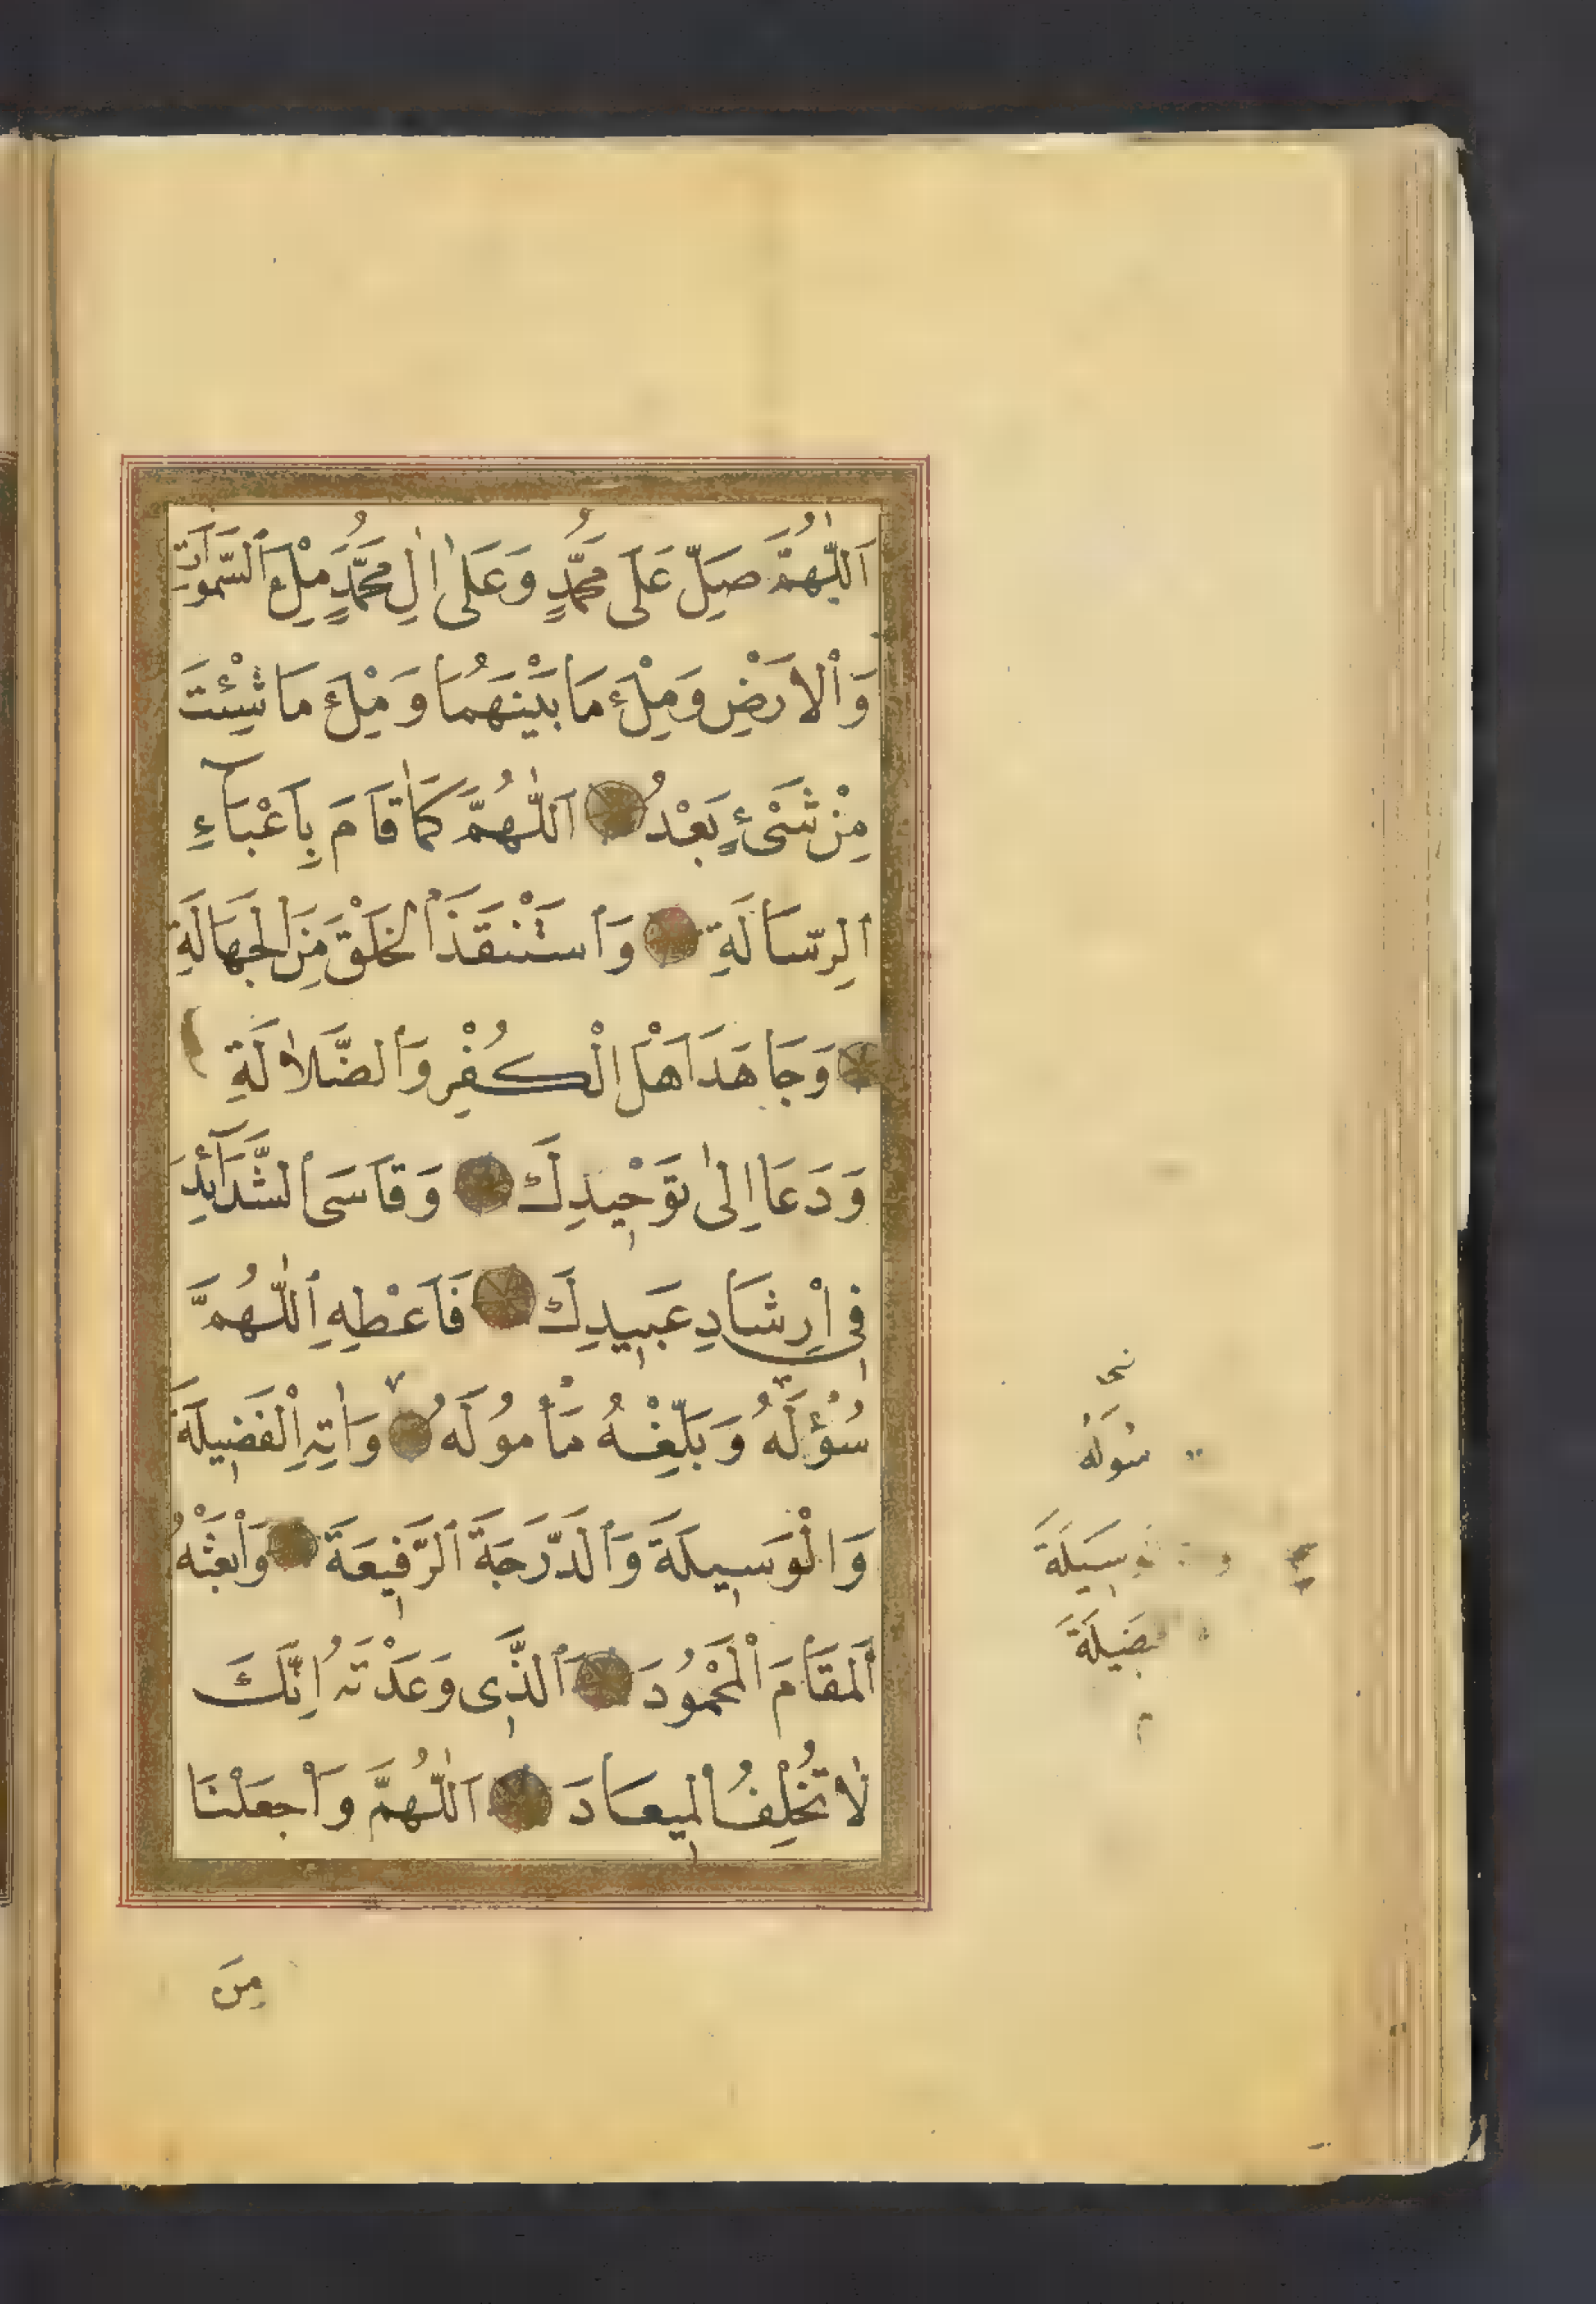 اَللّٰهُمَّ صَلِّ عَلٰى مُحَمَّدٍ وَعَلٰى اٰلِ مُحَمَّدٍ مِلْءَ السَّمٰوَاتِ
وَالْاَرْضِ وَمِلْءَ مَا بَيْنَهُمَا وَمِلْءَ مَا شِئْتَ
مِنْ شَىْءٍ بَعْدُ اَللّٰهُمَّ كَمَا قَامَ بِاَعْبَآءِ
الرِّسَالَةِ وَاسْتَنْقَذَ الْخَلْقَ مِنَ الْجَهَالَةِ
وَجَاهَدَ اَهْلَ الْكُفْرِ وَالضَّلَالَةِ
وَدَعَا اِلٰى تَوْحِيدِكَ وَقَاسَى الشَّدَآئِدَ
فِى اِرْشَادِ عَبِيدِكَ فَاَعْطِهِ اللّٰهُمَّ
سُؤْلَهُ وَبَلِّغْهُ مَأْمُولَهُ وَاٰتِهِ الْفَضِيلَةَ
وَالْوَسِيلَةَ وَالدَّرَجَةَ الرَّفِيعَةَ وَابْعَثْهُ
الْمَقَامَ الْمَحْمُودَ الَّذِى وَعَدْتَهُ اِنَّكَ
لَا تُخْلِفُ الْمِيعَادَ اَللّٰهُمَّ وَاجْعَلْنَا
مِنَ
سُولَهُ